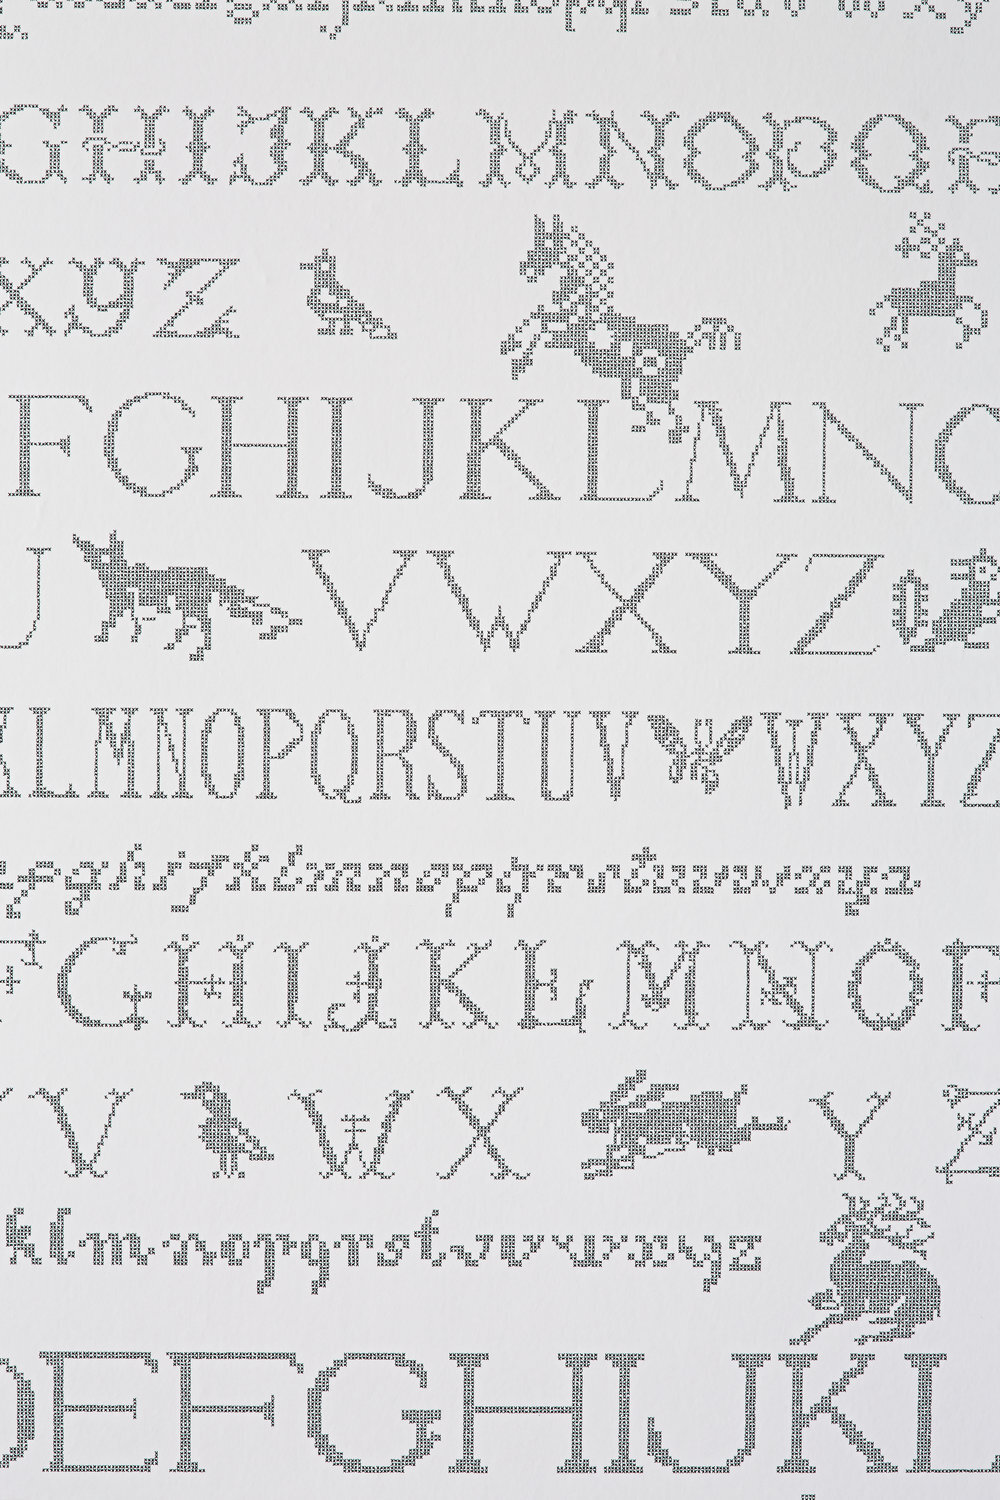 GHIJKLMNOPQR
XYZ
FGHIJKLMNO
U VWXYZ
KLMNOPQRSTUV WXYZ
efghijklmnopqrstuvwxyz
FGHIJKLMNOP
V WX YZ
klmnopqrstuvwxyz
DEFGHIJKL